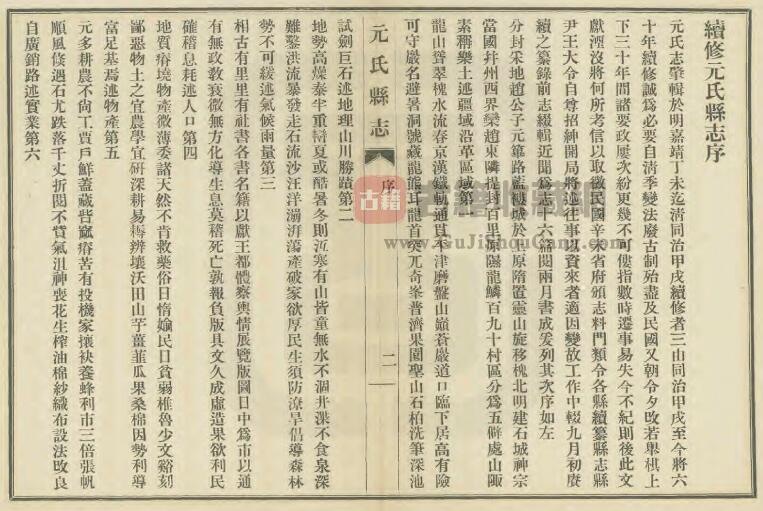 續修元氏縣志序
元氏志肇輯於明嘉靖丁未迄清同治甲戌續修者三由同治甲戌至今將六
十年續修誠為必要自清季變法廢古制殆盡及民國又朝令夕改若舉棋上
下三十年間諸要政屢次紛更幾不可僂指數時遷事易失今不紀則後此文
獻湮沒將何所考信以取徵民國辛未省府頒志料門類令各縣續纂縣志縣
尹王大令自尊招紳開局將述往事以資來者適因變故工作中輟九月初賡
續之纂錄前志綴輯近聞為志十六篇閱兩月書成爰列其次序如左
分封采地趙公子元蓽路藍縷城於上原隋置靈山旋移槐北明建石城神宗
當國幷州西界欒趙東隣提封百里原隰龍鱗百九十村區分為五僻處山陬
素稱樂土述疆域沿革區域第一
龍山聳翠槐水流春京漢鐵軌通貫平津磨盤山嶺蒼巖道口臨下居高有險
可守嚴名避暑洞號藏龍熊耳龍首突兀奇峯普濟果園聖山石柏洗筆深池
元氏縣志
序
二
試劍巨石述地理山川勝蹟第二
地勢高燥泰半重嶂夏或酷暑冬則沍寒有山皆童無水不涸井渫不食泉深
難鑿洪流暴發走石流沙汪洋溺湃蕩產破家欲厚民生須防潦旱倡導森林
勢不可緩述氣候雨量第三
相古有里里有社書各書名籍以獻王都體察輿情展覽版圖日中為市以通
有無政教衰微無方化導生息莫稽死亡孰報負版具文久成虛造果欲利民
確稽息耗述人口第四
地質瘠墝物產微薄委諸天然不肯救藥俗日惰媮民日貧弱椎魯少文谿刻
鄙惡物土之宜農學宜研深耕易耨辨壤沃田山芋薑韮瓜果桑棉因勢利導
富足基焉述物產第五
元多耕農不尙工賈戶鮮蓋藏呰窳瘠苦有投機家攘袂養蜂利市三倍張帆
順風倐遇石尤跌落千丈折閱不貲氣沮神喪花生榨油棉紗織布設法改良
自廣銷路述實業第六
古籍
www.GuJinQuCang.com